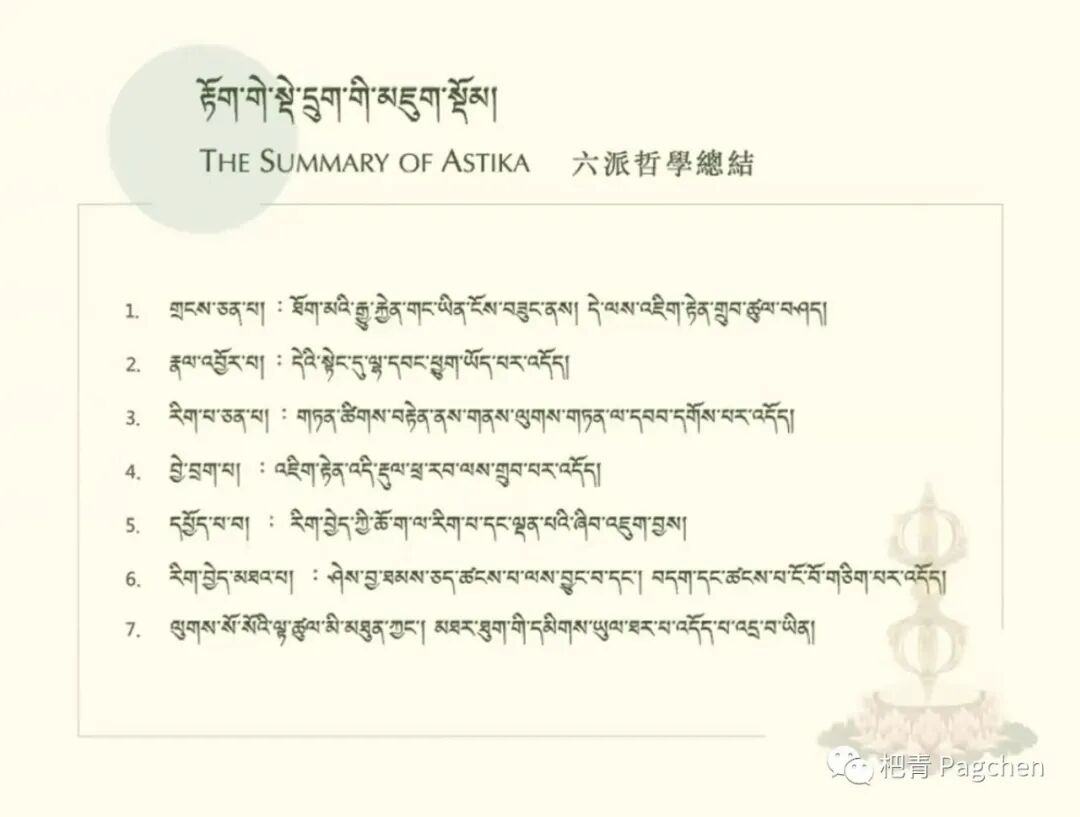 རྟོག་གེ་སྡེ་དྲུག་གི་མཇུག་སྡོམ།
THE SUMMARY OF ASTIKA 六派哲學總結
1. གྲངས་ཅན་པ། : ཐོག་མའི་རྒྱུ་རྐྱེན་གང་ཡིན་ངོས་བཟུང་ནས། དེ་ལས་འཇིག་རྟེན་གྲུབ་ཚུལ་བཤད།
2. རྣལ་འབྱོར་པ། : དེའི་སྟེང་དུ་ལྷ་དབང་ཕྱུག་ཡོད་པར་འདོད།
3. རིག་པ་ཅན་པ། : གཏན་ཚིགས་བརྟེན་ནས་གནས་ལུགས་གཏན་ལ་དབབ་དགོས་པར་འདོད།
4. བྱེ་བྲག་པ། : འཇིག་རྟེན་འདི་རྡུལ་ཕྲ་རབ་ལས་གྲུབ་པར་འདོད།
5. དཔྱོད་པ་བ། : རིག་བྱེད་ཀྱི་ཆོ་ག་ལ་རིག་པ་དང་ལྡན་པའི་ཞིབ་འཇུག་བྱས།
6. རིག་བྱེད་མཐའ་པ། : ཤེས་བྱ་ཐམས་ཅད་ཚངས་པ་ལས་བྱུང་བ་དང་། བདག་དང་ཚངས་པ་ངོ་བོ་གཅིག་པར་འདོད།
7. ལུགས་སོ་སོའི་ལྟ་ཚུལ་མི་མཐུན་ཀྱང་། མཐར་ཐུག་གི་དམིགས་ཡུལ་ཐར་པ་འདོད་པ་འདྲ་བ་ཡིན།
杷青 Pagchen